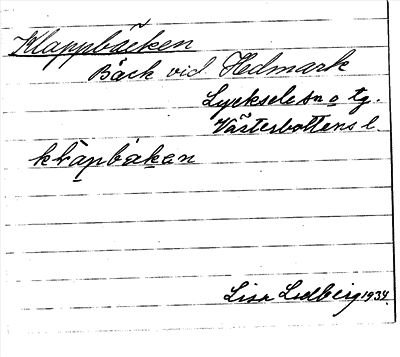 Klappbäcken
Bäck vid Hedmark
Lycksele sn o tg.
Västerbottens l.
klapbäkan
Lisa Lidberg 1934.